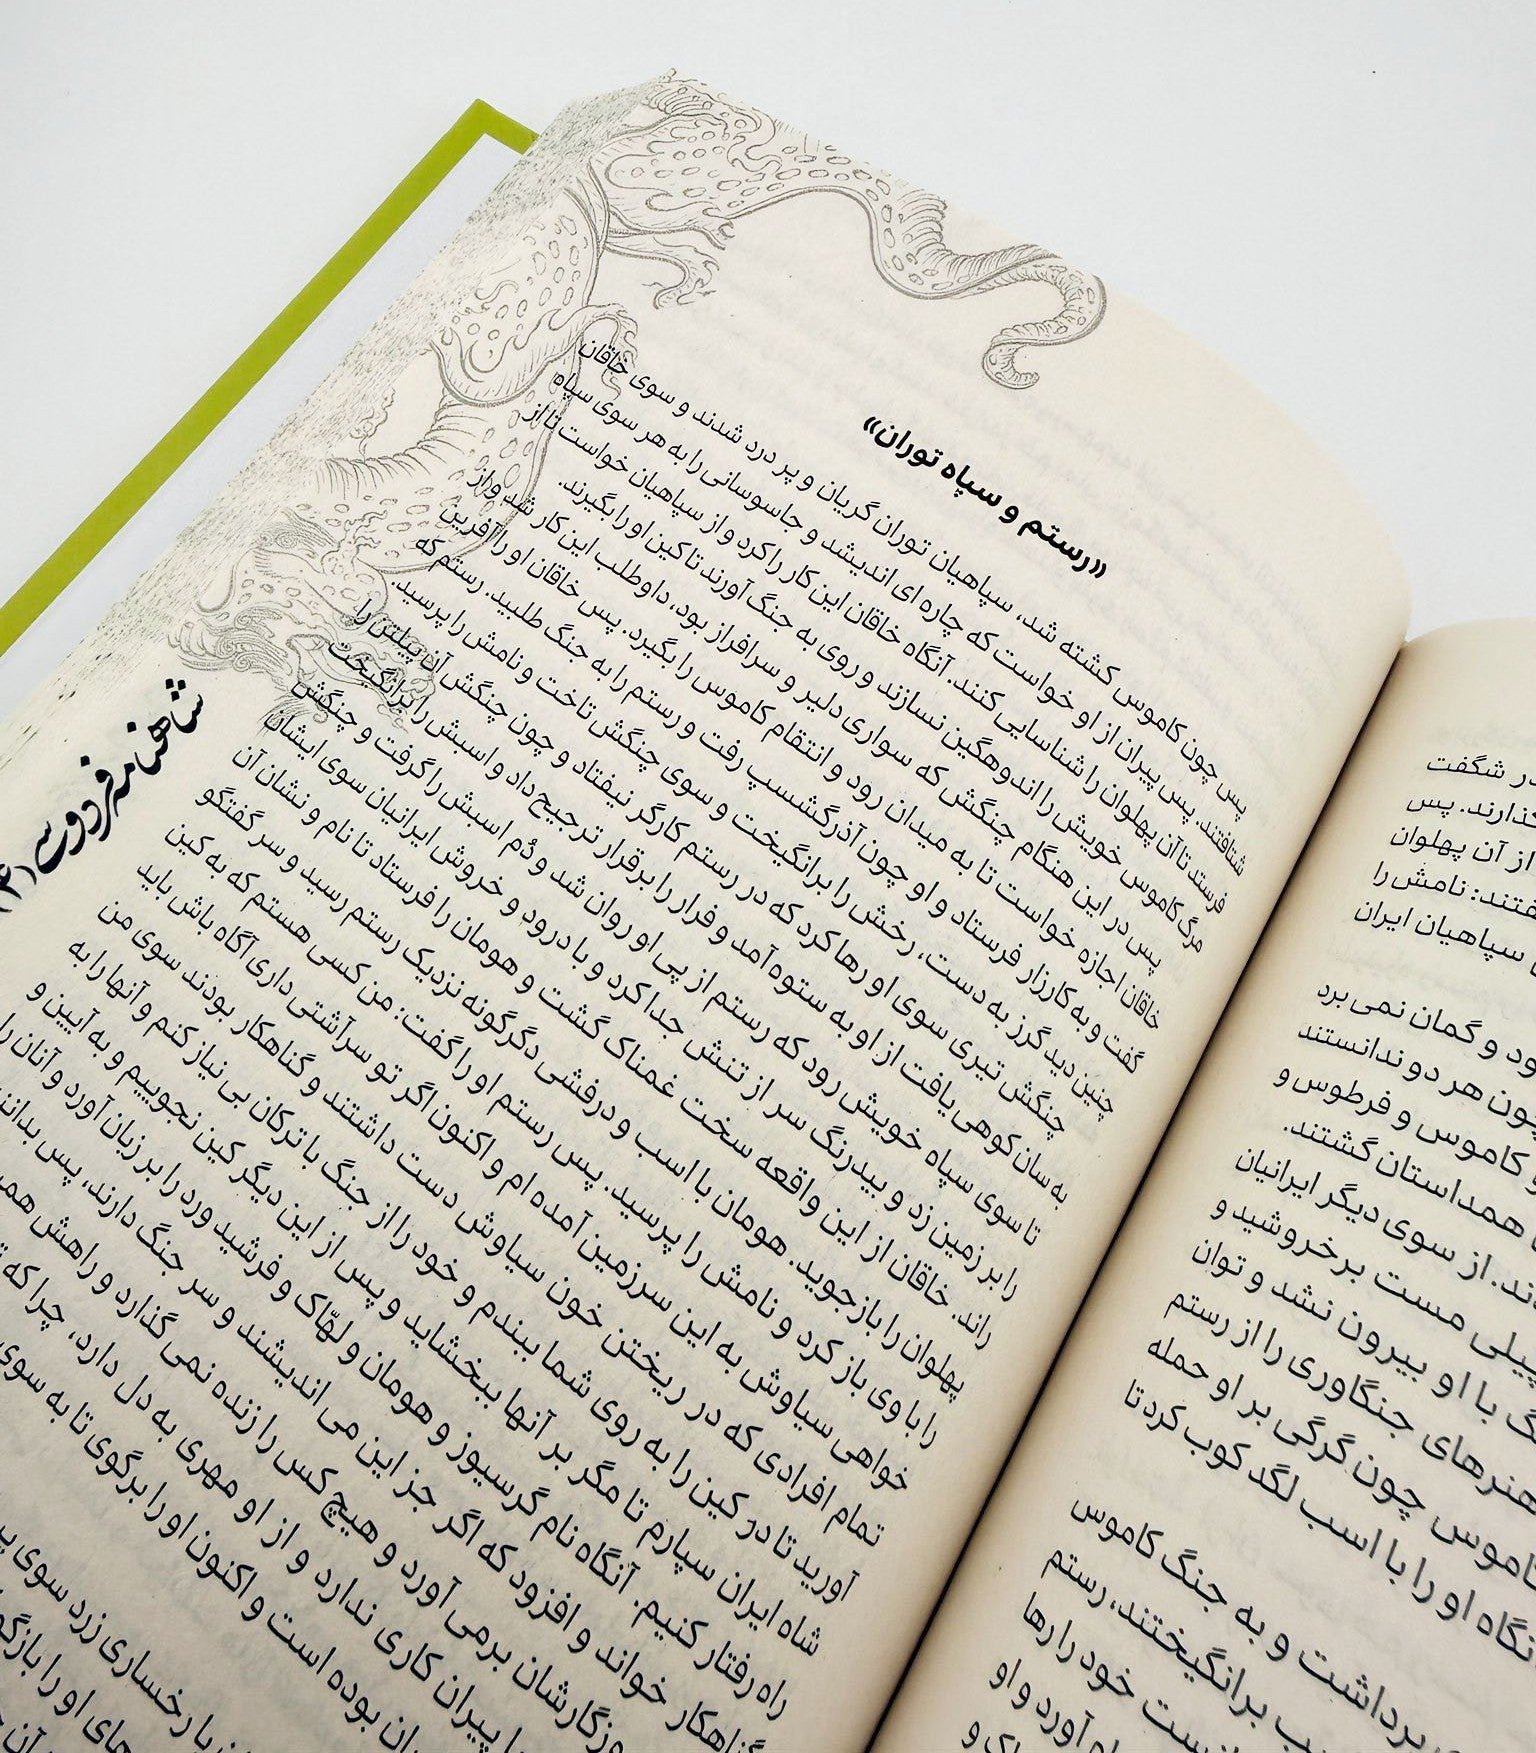 در شگفت
گذارند. پس
از آن پهلوان
گفتند: نامش را
سپاهیان ایران
بود و گمان نمی برد
چون هر دو ندانستند
و کاموس و فرطوس و
همداستان گشتند.
از سوی دیگر ایرانیان
پیلی مست برخروشید و
با او بیرون نشد و توان
هنرهای جنگاوری را از رستم
کاموس چون گرگی بر او حمله
آنگاه او را با اسب لگد کوب کرد تا
برداشت و به جنگ کاموس
برانگیختند، رستم
خود را رها
آورد و او
«رستم و سپاه توران»
پس چون کاموس کشته شد، سپاهیان توران گریان و پر درد شدند و سوی خاقان
شتافتند. پس پیران از او خواست که چاره ای اندیشد و جاسوسانی را به هر سوی سپاه
فرستد تا آن پهلوان را شناسایی کنند. آنگاه خاقان این کار را کرد و از سپاهیان خواست تا از
مرگ کاموس خویش را اندوهگین نسازند و روی به جنگ آورند تا کین او را بگیرند.
پس در این هنگام چنگش که سواری دلیر و سرافراز بود، داوطلب این کار شد و از
خاقان اجازه خواست تا به میدان رود و انتقام کاموس را بگیرد. پس خاقان او را آفرین
گفت و به کارزار فرستاد و او چون آذرگشسپ رفت و رستم را به جنگ طلبید. رستم که
چنین دید گرز به دست، رخش را برانگیخت و سوی چنگش تاخت و نامش را پرسید.
چنگش تیری سوی او رها کرد که در رستم کارگر نیفتاد و چون چنگش آن پیلتن را
به سان کوهی یافت از او به ستوه آمد و فرار را برقرار ترجیح داد و اسبش را برانگیخت
تا سوی سپاه خویش رود که رستم از پی او روان شد و دُم اسبش را گرفت و چنگش
را بر زمین زد و بیدرنگ سر از تنش جدا کرد و با درود و خروش ایرانیان سوی ایشان
راند. خاقان از این واقعه سخت غمناک گشت و هومان را فرستاد تا نام و نشان آن
پهلوان را بازجوید. هومان با اسب و درفشی دگرگونه نزدیک رستم رسید و سر گفتگو
را با وی باز کرد و نامش را پرسید. پس رستم او را گفت: من کسی هستم که به کین
خواهی سیاوش به این سرزمین آمده ام و اکنون اگر تو سر آشتی داری آگاه باش باید
تمام افرادی که در ریختن خون سیاوش دست داشتند و گناهکار بودند سوی من
آورید تا در کین را به روی شما ببندم و خود را از جنگ با ترکان بی نیاز کنم و آنها را به
شاه ایران سپارم تا مگر بر آنها ببخشاید و پس از این دیگر کین نجوییم و به آیین و
راه رفتار کنیم. آنگاه نام گرسیوز و هومان و لهّاک و فرشید ورد را بر زبان آورد و آنان را
گناهکار خواند و افزود که اگر جز این می اندیشند و سر جنگ دارند، پس بدانند
روزگارشان برمی آورد و هیچ کس را زنده نمی گذارد و راهش
با پیران کاری ندارد و از او مهری به دل دارد، چرا که
بوده است و اکنون او را برگوی تا به سوی
با رخساری زرد سوی
های او را
شاهنامه فردوسی (۳)